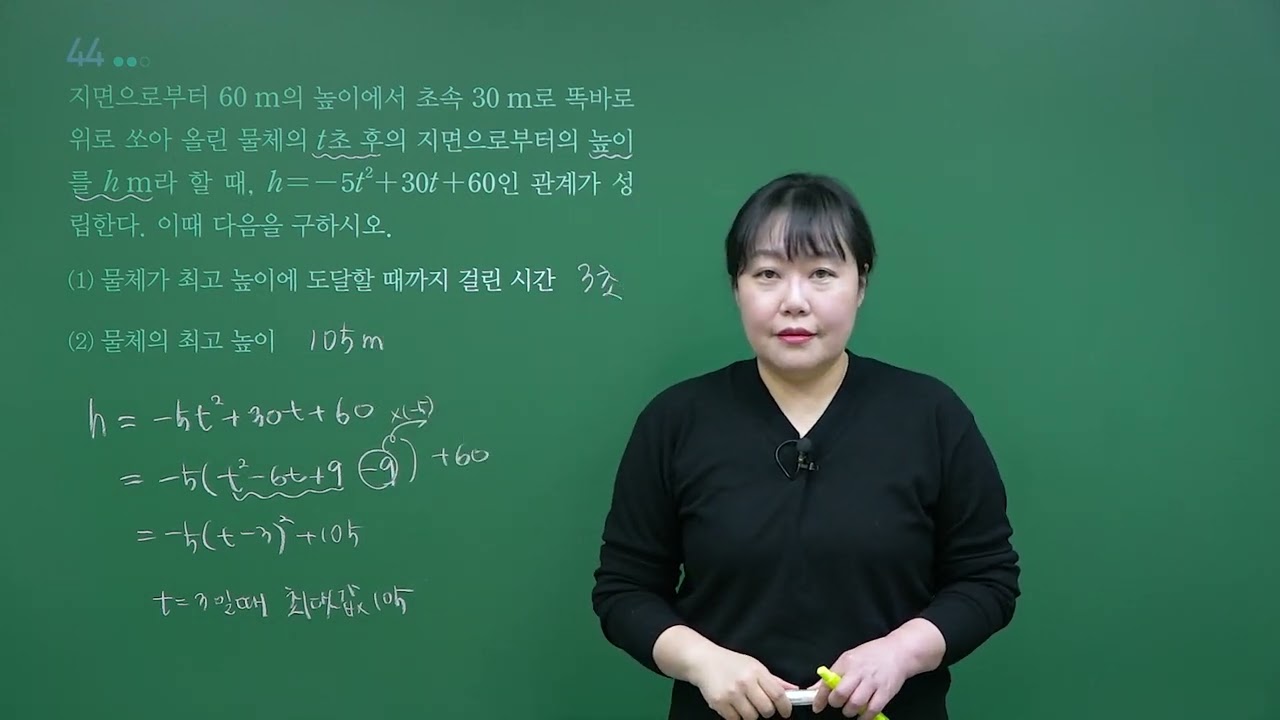 44
지면으로부터 60 m의 높이에서 초속 30 m로 똑바로
위로 쏘아 올린 물체의 t초 후의 지면으로부터의 높이
를 h m라 할 때, h=-5t²+30t+60인 관계가 성
립한다. 이때 다음을 구하시오.
(1) 물체가 최고 높이에 도달할 때까지 걸린 시간 3초
(2) 물체의 최고 높이 105m
h = -5t²+30t+60 ×(-5)
= -5(t²-6t+9 -9) +60
= -5(t-3)²+105
t=3일때 최댓값 105